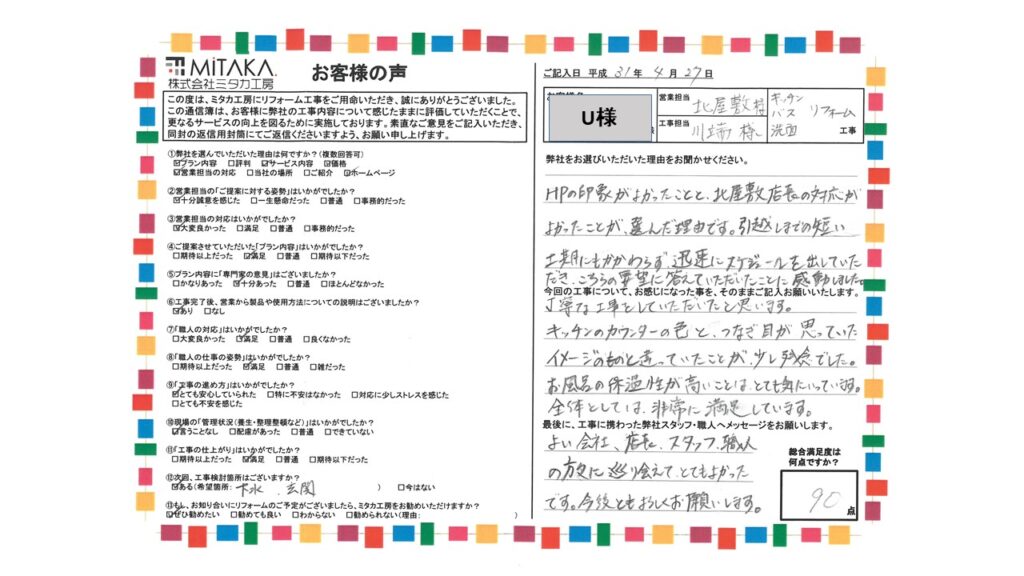 MiTAKA.
株式会社ミタカ工房
お客様の声
この度は、ミタカ工房にリフォーム工事をご用命いただき、誠にありがとうございました。
この通信簿は、お客様に弊社の工事内容について感じたままに評価していただくことで、
更なるサービスの向上を図るために実施しております。素直なご意見をご記入いただき、
同封の返信用封筒にてご返信くださいますよう、お願い申し上げます。
①弊社を選んでいただいた理由は何ですか?(複数回答可)
☑プラン内容 □評判 ☑サービス内容 ☑価格
☑営業担当の対応 □当社の場所 □ご紹介 ☑ホームページ
②営業担当の「ご提案に対する姿勢」はいかがでしたか?
☑十分誠意を感じた □一生懸命だった □普通 □事務的だった
③営業担当の対応はいかがでしたか?
☑大変良かった □満足 □普通 □事務的だった
④ご提案させていただいた「プラン内容」はいかがでしたか?
□期待以上だった ☑満足 □普通 □期待以下だった
⑤プラン内容に「専門家の意見」はございましたか?
□かなりあった ☑十分あった □普通 □ほとんどなかった
⑥工事完了後、営業から製品や使用方法についての説明はございましたか?
☑あり □なし
⑦「職人の対応」はいかがでしたか?
□大変良かった ☑満足 □普通 □良くなかった
⑧「職人の仕事の姿勢」はいかがでしたか?
□期待以上だった ☑満足 □普通 □雑だった
⑨「工事の進め方」はいかがでしたか?
☑とても安心していられた □特に不安はなかった □対応に少しストレスを感じた
□とても不安を感じた
⑩現場の「管理状況(養生・整理整頓など)」はいかがでしたか?
☑言うことなし □配慮があった □普通 □できていない
⑪「工事の仕上がり」はいかがでしたか?
□期待以上だった ☑満足 □普通 □期待以下だった
⑫次回、工事検討箇所はございますか?
☑ある(希望箇所: 下水、玄関 ) □今はない
⑬もし、お知り合いにリフォームのご予定がございましたら、ミタカ工房をお勧めいただけますか?
☑ぜひ勧めたい □勧めても良い □わからない □勧められない(理由: )
ご記入日 平成 31 年 4 月 27 日
U様
営業担当 北屋敷様
工事担当 川端様
キッチン
バス リフォーム
洗面 工事
弊社をお選びいただいた理由をお聞かせください。
HPの印象がよかったことと、北屋敷店長の対応が
よかったことが、選んだ理由です。引越しまでの短い
工期にもかかわらず、迅速にスケジュールを出していた
だき、こちらの要望に答えていただいたことに感動しました。
今回の工事について、お感じになった事を、そのままご記入お願いいたします。
丁寧な工事をしていただいたと思います。
キッチンのカウンターの色と、つなぎ目が思っていた
イメージのものと違っていたことが、少し残念でした。
お風呂の保温性が高いことは、とても気にいっています。
全体としては、非常に満足しています。
最後に、工事に携わった弊社スタッフ・職人へメッセージをお願いします。
よい会社、店長、スタッフ、職人
の方々に巡り会えて、とてもよかった
です。今後ともよろしくお願いします。
総合満足度は
何点ですか?
90点